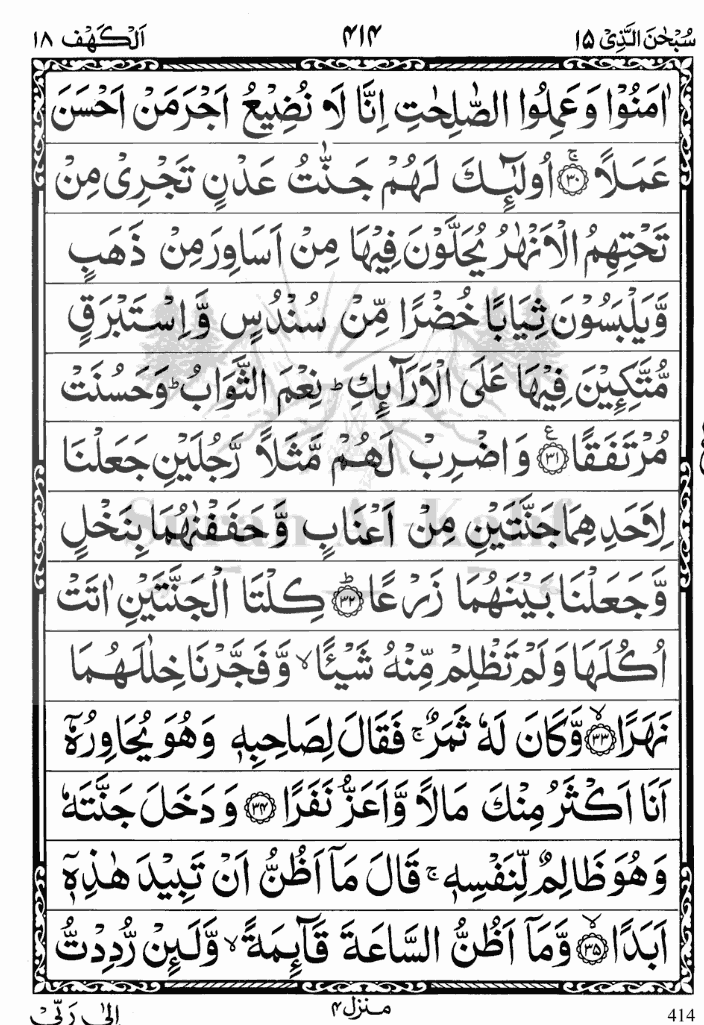 سُبْحٰنَ الَّذِىْٓ ۱۵ ۴۱۴ اَلْكَهْف ۱۸
اٰمَنُوْا وَعَمِلُوا الصّٰلِحٰتِ اِنَّا لَا نُضِيْعُ اَجْرَ مَنْ اَحْسَنَ
عَمَلًا ۚ‏﴿۳۰﴾ اُولٰٓئِكَ لَهُمْ جَنّٰتُ عَدْنٍ تَجْرِىْ مِنْ
تَحْتِهِمُ الْاَنْهٰرُ يُحَلَّوْنَ فِيْهَا مِنْ اَسَاوِرَ مِنْ ذَهَبٍ
وَّيَلْبَسُوْنَ ثِيَابًا خُضْرًا مِّنْ سُنْدُسٍ وَّاِسْتَبْرَقٍ
مُّتَّكِـِٕيْنَ فِيْهَا عَلَى الْاَرَآىِٕكِ ؕ نِعْمَ الثَّوَابُ ؕ وَحَسُنَتْ
مُرْتَفَقًا ﴿۳۱﴾ ع وَاضْرِبْ لَهُمْ مَّثَلًا رَّجُلَيْنِ جَعَلْنَا
لِاَحَدِهِمَا جَنَّتَيْنِ مِنْ اَعْنَابٍ وَّحَفَفْنٰهُمَا بِنَخْلٍ
Surah Al-Kahf
وَّجَعَلْنَا بَيْنَهُمَا زَرْعًا ؕ‏﴿۳۲﴾ كِلْتَا الْجَنَّتَيْنِ اٰتَتْ
اُكُلَهَا وَلَمْ تَظْلِمْ مِّنْهُ شَيْـًٔا ۙ وَّفَجَّرْنَا خِلٰلَهُمَا
نَهَرًا ۙ‏﴿۳۳﴾ وَّكَانَ لَهٗ ثَمَرٌ ۚ فَقَالَ لِصَاحِبِهٖ وَهُوَ يُحَاوِرُهٗۤ
اَنَا اَكْثَرُ مِنْكَ مَالًا وَّاَعَزُّ نَفَرًا ﴿۳۴﴾ وَدَخَلَ جَنَّتَهٗ
وَهُوَ ظَالِمٌ لِّنَفْسِهٖ ۚ قَالَ مَاۤ اَظُنُّ اَنْ تَبِيْدَ هٰذِهٖۤ
اَبَدًا ۙ‏﴿۳۵﴾ وَّمَاۤ اَظُنُّ السَّاعَةَ قَآىِٕمَةً ۙ وَّلَىِٕنْ رُّدِدْتُّ
اِلٰى رَبِّىْ
منزل ۴
414